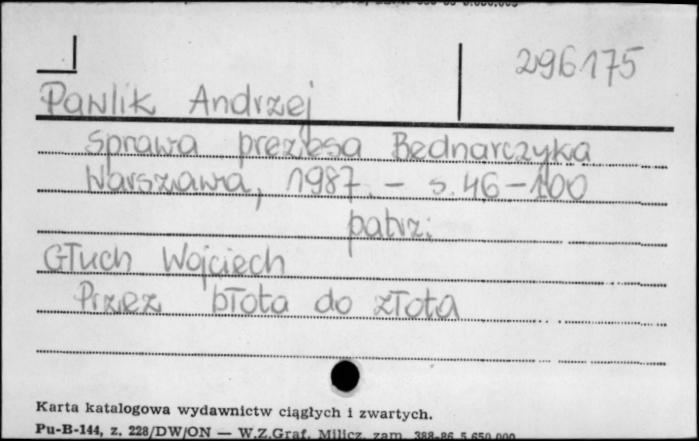 296175
Pawlik Andrzej
Sprawa prezesa Bednarczyka
Warszawa, 1987. – s. 46–100
patrz:
Głuch Wojciech
Przez błota do złota
Karta katalogowa wydawnictw ciągłych i zwartych.
Pu-B-144, z. 228/DW/ON — W.Z.Graf. Milicz, zam. 388-86 5.650.000